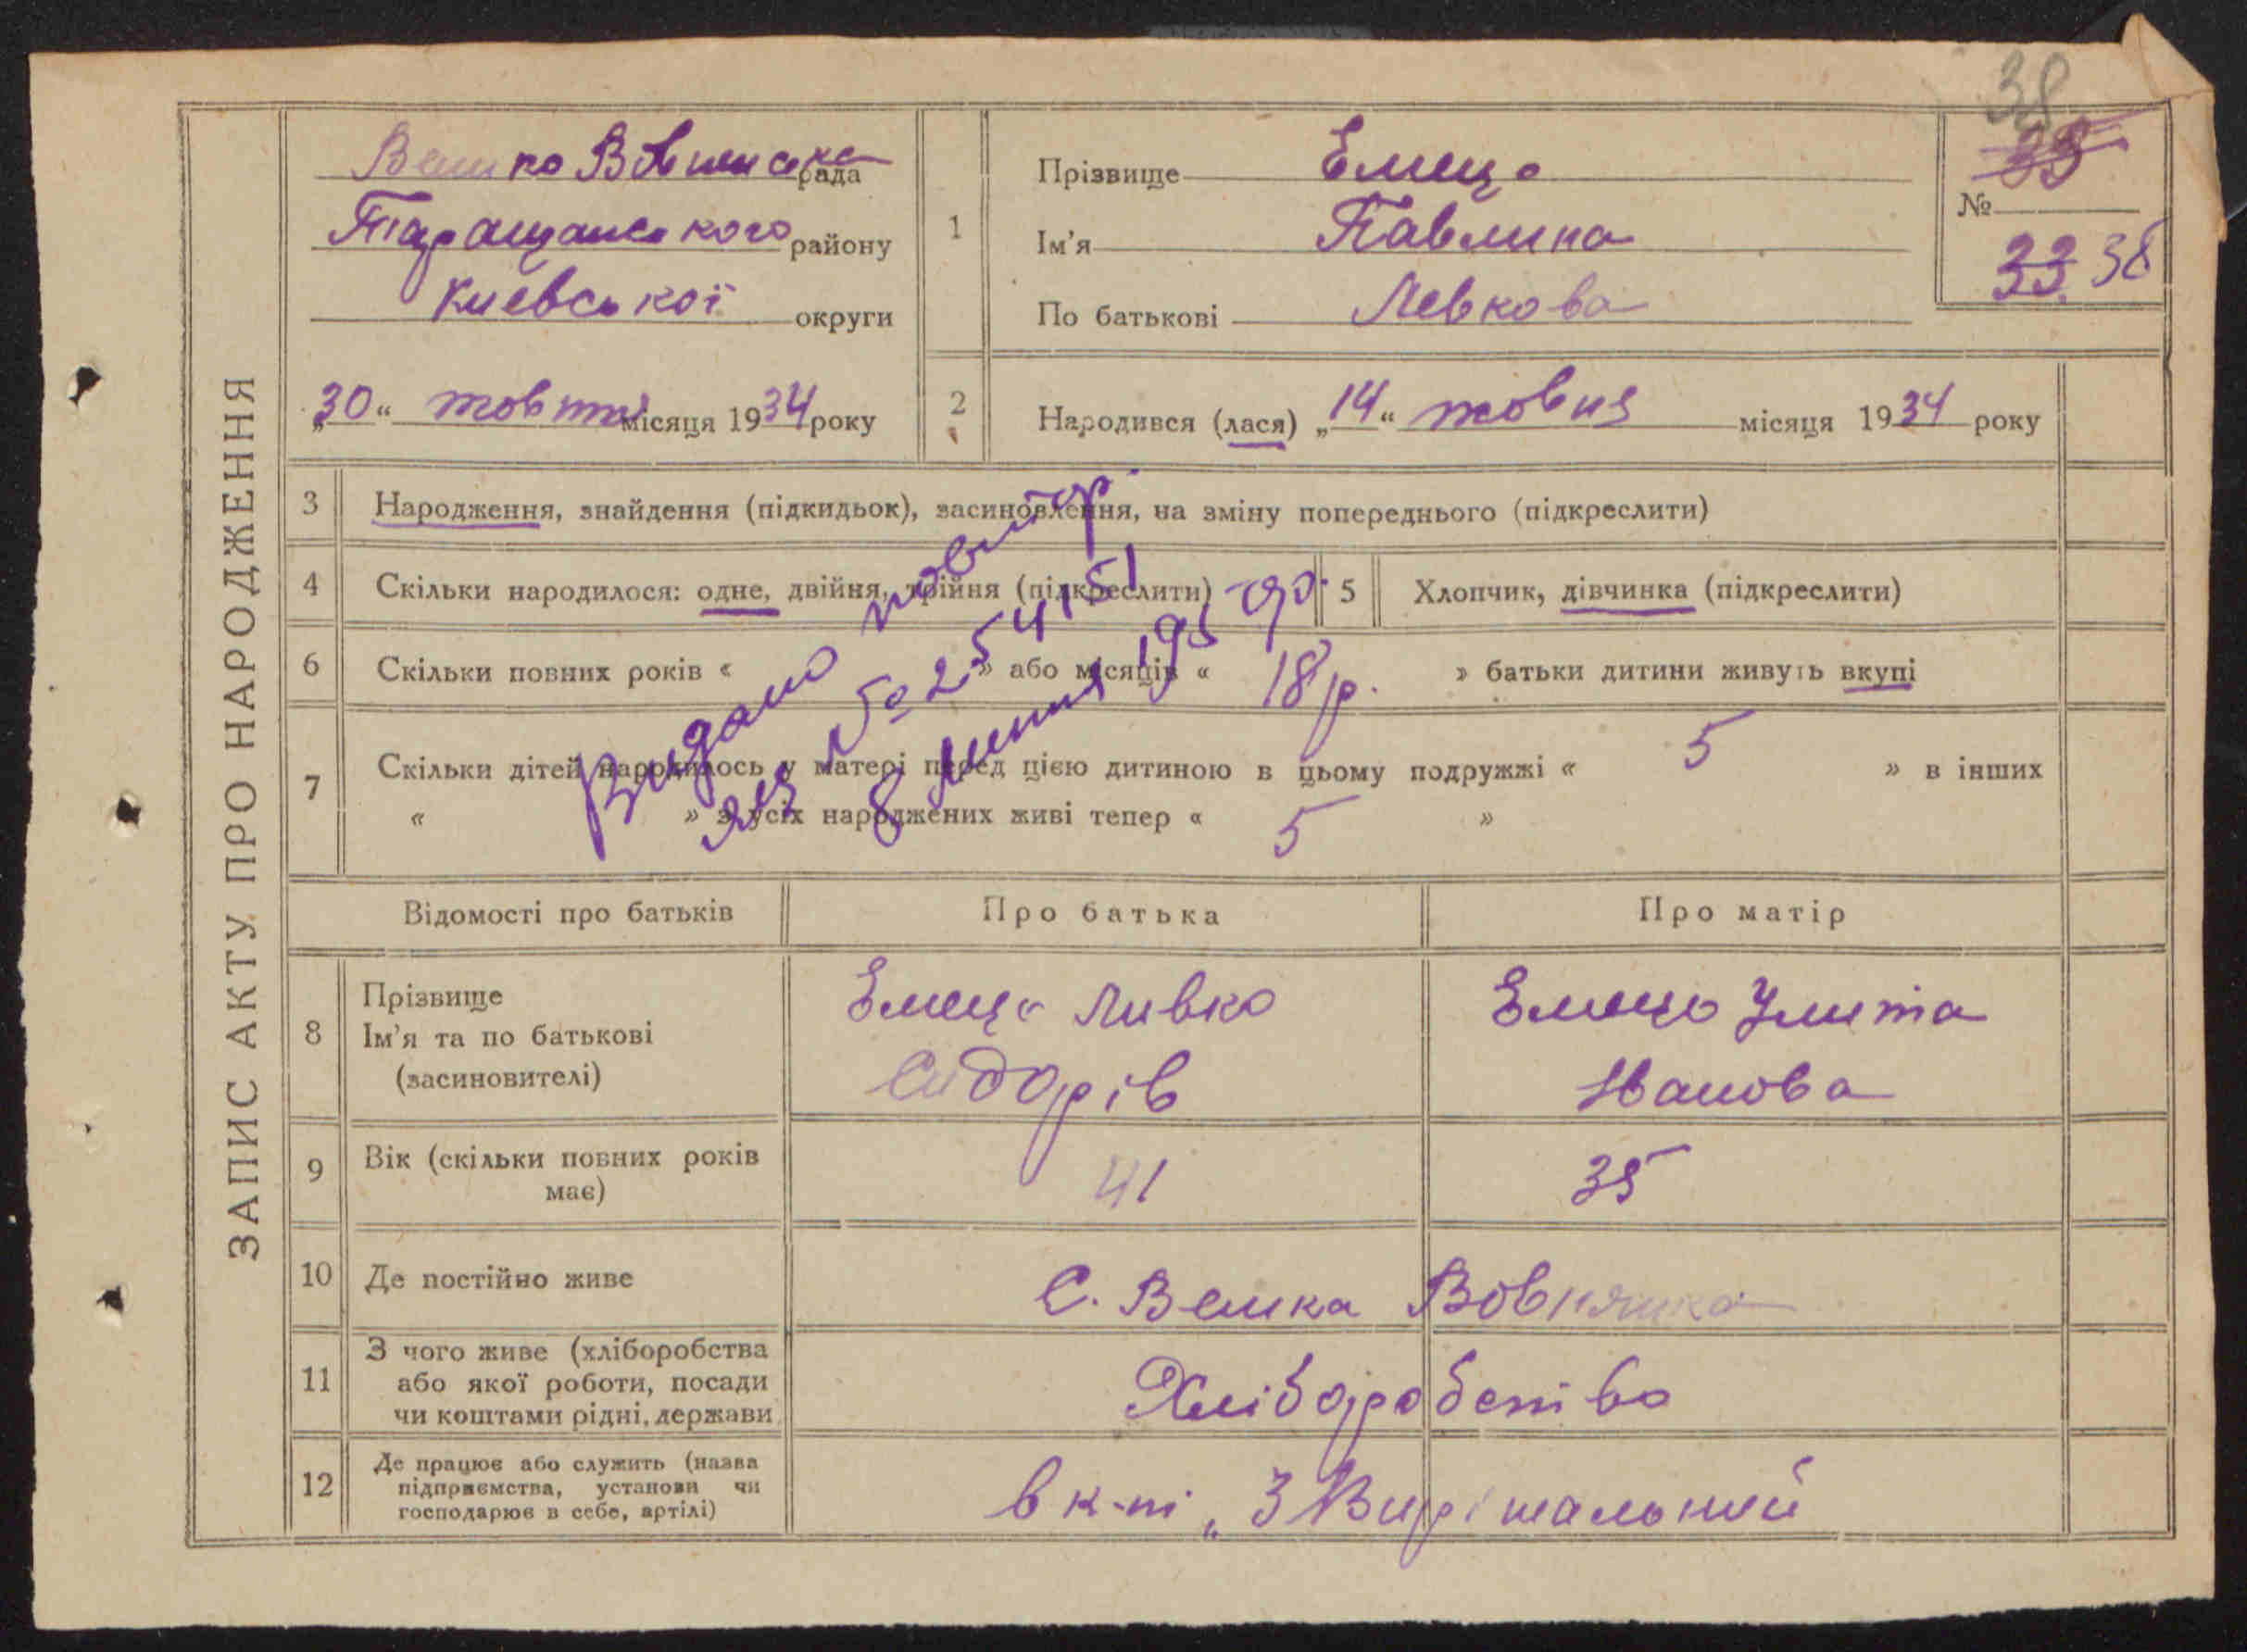 ЗАПИС АКТУ ПРО НАРОДЖЕННЯ
рада
Таращанського району
Київської округи
„30“ жовтня місяця 1934 року
38
33
№
33 38
1
Прізвище Емець
Ім'я Павлина
По батькові Левкова
2 Народився (лася) „14“ жовня місяця 1934 року
3 Народження, знайдення (підкидьок), засиновлення, на зміну попереднього (підкреслити)
4 Скільки народилося: одне, двійня, трійня (підкреслити)
5 Хлопчик, дівчинка (підкреслити)
6 Скільки повних років « » або місяців « 18 р. » батьки дитини живуть вкупі
7 Скільки дітей народилось у матері перед цією дитиною в цьому подружжі « 5 » в інших
« » з усіх народжених живі тепер « 5 »
Видано повтор
яз № 254151
8 липня 195 р.
Відомості про батьків Про батька Про матір
8 Прізвище
Ім'я та по батькові
(засиновителі)
Емець Ливко
Сидорів
Емець Улита
Іванова
9 Вік (скільки повних років
має)
41 35
10 Де постійно живе С. Велика Вовнянка
11 З чого живе (хліборобства
або якої роботи, посади
чи коштами рідні, держави
Хліборобство
12 Де працює або служить (назва
підприємства, установи чи
господарює в себе, артілі)
в к-пі „3 Вирішальний